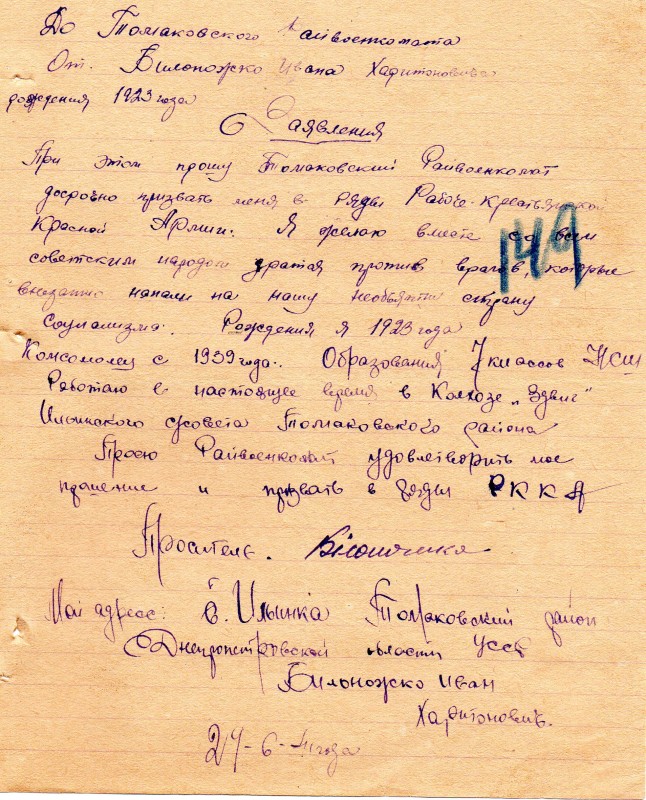 До Томаковского Райвоенкомата
От. Билоножко Ивана Харитоновича
рождения 1923 года
Заявления
При этом прошу Томаковский Райвоенкомат
досрочно призвать меня в ряды Рабоче-Крестьянской
Красной Армии. Я желаю вместе со всем
советским народом против врагов, которые
внезапно напали на нашу необъятн страну
социализма. Рождения я 1923 года
Комсомолец с 1939 года. Образования 7 классов НСШ
Работаю в настоящее время в Колхозе „Здвиг"
Ильинского с/совета Томаковского района
Прошу Райвоенкомат удовлетворить мое
прошение и призвать в ряды РККА
Проситель.
Мой адрес: с. Ильинка Томаковский район
Днепропетровской области УССР
Билоножко Иван
Харитонович.
24-6-41 года
149